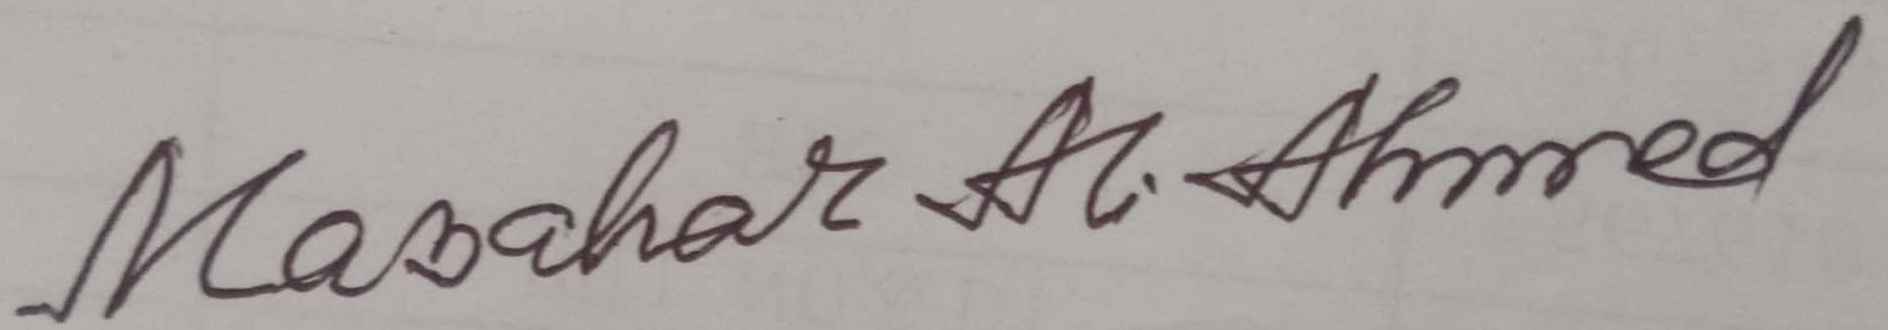 Masahar Al. Ahmed